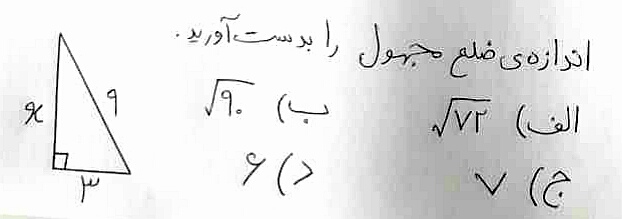 اندازه‌ی ضلع مجهول را بدست آورید.
الف) √۷۲ ب) √۹۰
ج) ۷ د) ۶
x ۹
۳